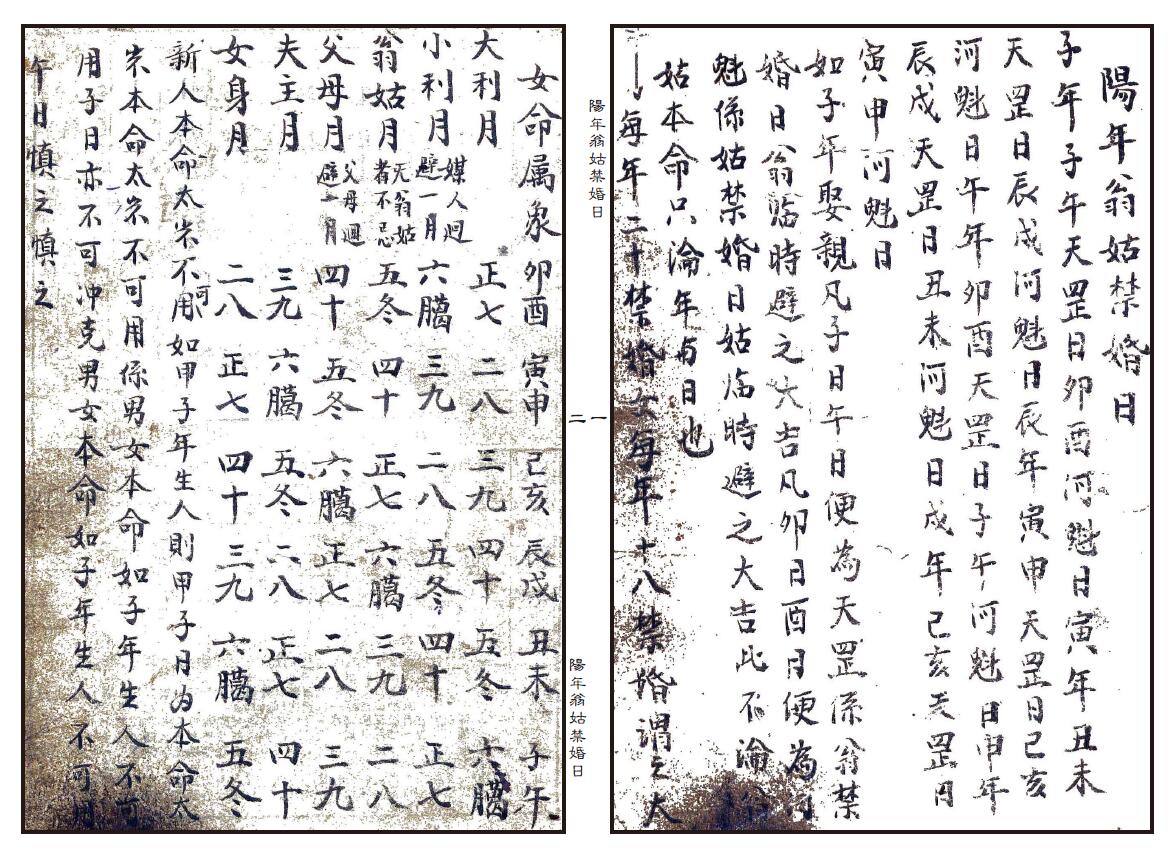 陽年翁姑禁婚日
子年子午天罡日卯酉河魁日寅年丑未
天罡日辰戌河魁日辰年寅申天罡日己亥
河魁日午年卯酉天罡日子午河魁日申年
辰戌天罡日丑未河魁日戌年己亥天罡日
寅申河魁日
如子年娶親凡子日午日便為天罡係翁禁
婚日翁臨時避之大吉凡卯日酉日便為河
魁係姑禁婚日姑临時避之大吉此不淪翁
姑本命只淪年与日也
一每年二十禁婚女每年十八禁婚謂之大
陽年翁姑禁婚日
一
二
陽年翁姑禁婚日
女命属象 卯酉 寅申 己亥 辰戌 丑未 子午
大利月 正七 二八 三九 四十 五冬 六臈
小利月 媒人迴避一月 六臈 三九 二八 五冬 四十 正七
翁姑月 无翁姑者不忌 五冬 四十 正七 六臈 三九 二八
父母月 父母迴避一月 四十 五冬 六臈 正七 二八 三九
夫主月 三九 六臈 五冬 二八 正七 四十
女身月 二八 正七 四十 三九 六臈 五冬
新人本命太岁不可用如甲子年生人則甲子日为本命太
岁本命太岁不可用係男女本命如子年生人不可
用子日亦不可冲克男女本命如子年生人不可用
午日慎之慎之